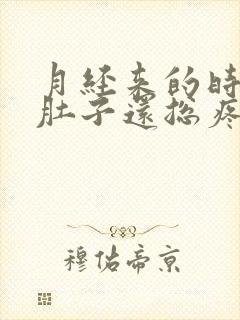 月经来的時
肚子還总疼
穆佑帝京